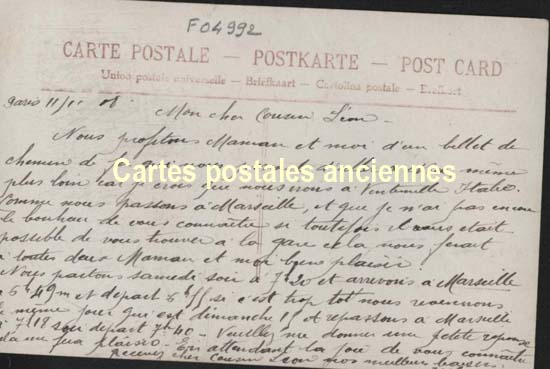 F04992
CARTE POSTALE — POSTKARTE — POST CARD
Union postale universelle — Briefkaart — Cartolina postale —
Paris 11/11 08. Mon cher Cousin Léon —
Nous profitons Maman et moi d'un billet de
chemin de fer qui nous même
Cartes postales anciennes
plus loin car je crois que nous irons à Vintimille Italie.
Comme nous passons à Marseille, et que je n'ai pas encore
le bonheur de vous connaître si toutefois il vous était
possible de vous trouver à la gare cela nous ferait
à toutes deux Maman et moi bien plaisir.
Nous partons samedi soir à 7h20 et arrivons à Marseille
à 6h 49m et départ 6h si c'est trop tôt nous revenons
le même jour qui est dimanche 15 et repassons à Marseille
à 7h18 soir départ 7h40 — Veuillez me donner une petite réponse
ça me fera plaisir — En attendant la joie de vous connaître
Recevez cher Cousin Léon nos meilleurs baisers.